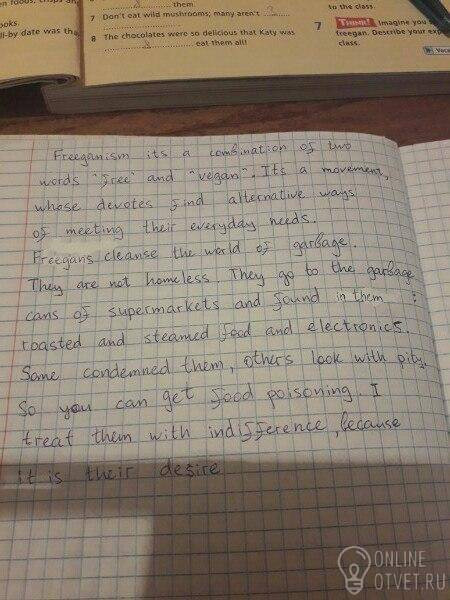 them
to the class.
ooks.
ll-by date was tha
7 Don't eat wild mushrooms; many aren't
7 THINK! Imagine you
8 The chocolates were so delicious that Katy was
eat them all!
freegan. Describe your
class.
Freeganism its a combination of two
words "free" and "vegan". Its a movement,
whose devotes find alternative ways
of meeting their everyday needs.
Freegans cleanse the world of garbage.
They are not homeless. They go to the garbage
cans of supermarkets and found in them :
roasted and steamed food and electronics.
Some condemned them, others look with pity.
So you can get food poisoning. I
treat them with indifference, because
it is their desire
ONLINE
OTVET.RU